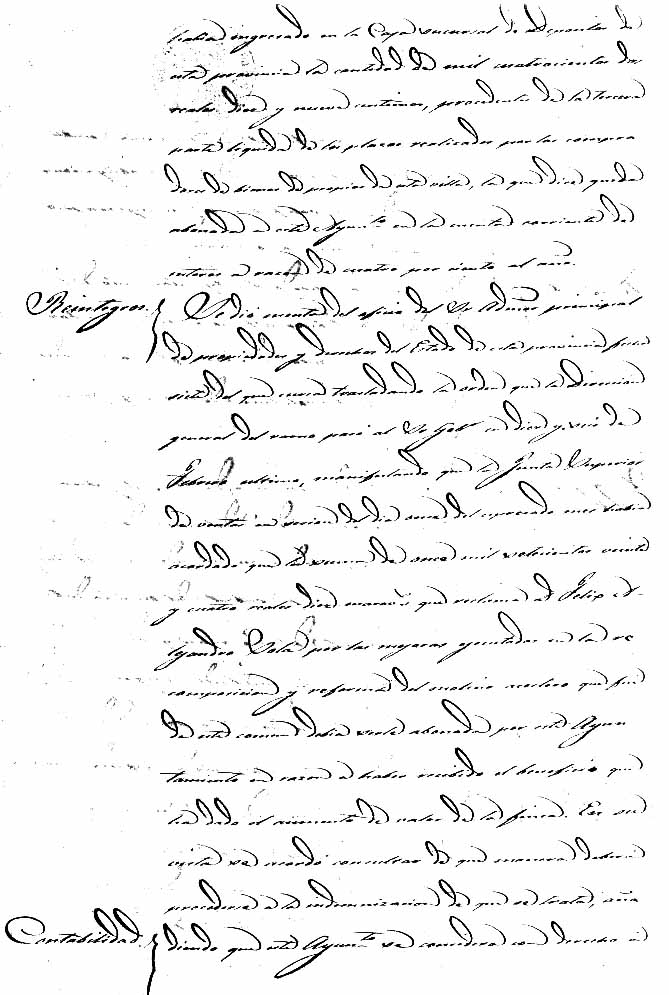 habia ingresado en la Caja sucursal de Depositos de
esta provincia la cantidad de mil cuatrocientos dos
reales diez y nueve centimos, procedente de la tercera
parte liquida de los plazos realizados por los compra
dores de bienes de propios de esta villa, la que dice queda
abonada a este Ayunt.º en la cuenta corriente de
interes a razon de cuatro por ciento al año.
Reintegros. Se dio cuenta del oficio del Sr. Admor principal
de propiedades y derechos del Estado de esta provincia fecha
siete del que cursa trasladando la orden que la Direccion
general del ramo pasó al Sr. Gobr en diez y seis de
Febrero ultimo, manifestando que la Junta Superior
de ventas en sesion del dia once del espresado mes habia
acordado que la suma de once mil ochocientos veinte
y cuatro reales diez marav.s que reclama D. Felix A-
lejandro por las mejoras ejecutadas en la re
composicion y reforma del molino aceitero que fue
de este comun debia serle abonada por este Ayun
tamiento en razon a haber recibido el beneficio que
ha dado el aumento de valor de la finca. En su
vista se acordó consultar de que manera deberá
procederse a la indemnizacion de que se trata, aña
Contabilidad. diendo que este Ayunt.º se considera con derecho a